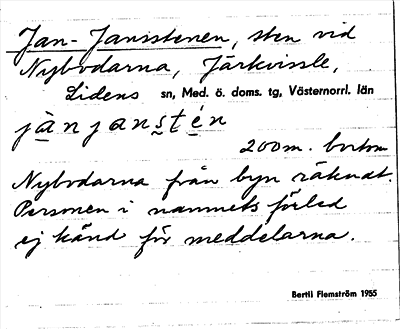 Jan-Jansstenen, sten vid
Nybodarna, Järkvissle,
Lidens sn, Med. ö. doms. tg, Västernorrl. län
jànjanstén
200 m. bortom
Nybodarna från byn räknat.
Personen i namnets förled
ej känd för meddelarna.
Bertil Flemström 1955